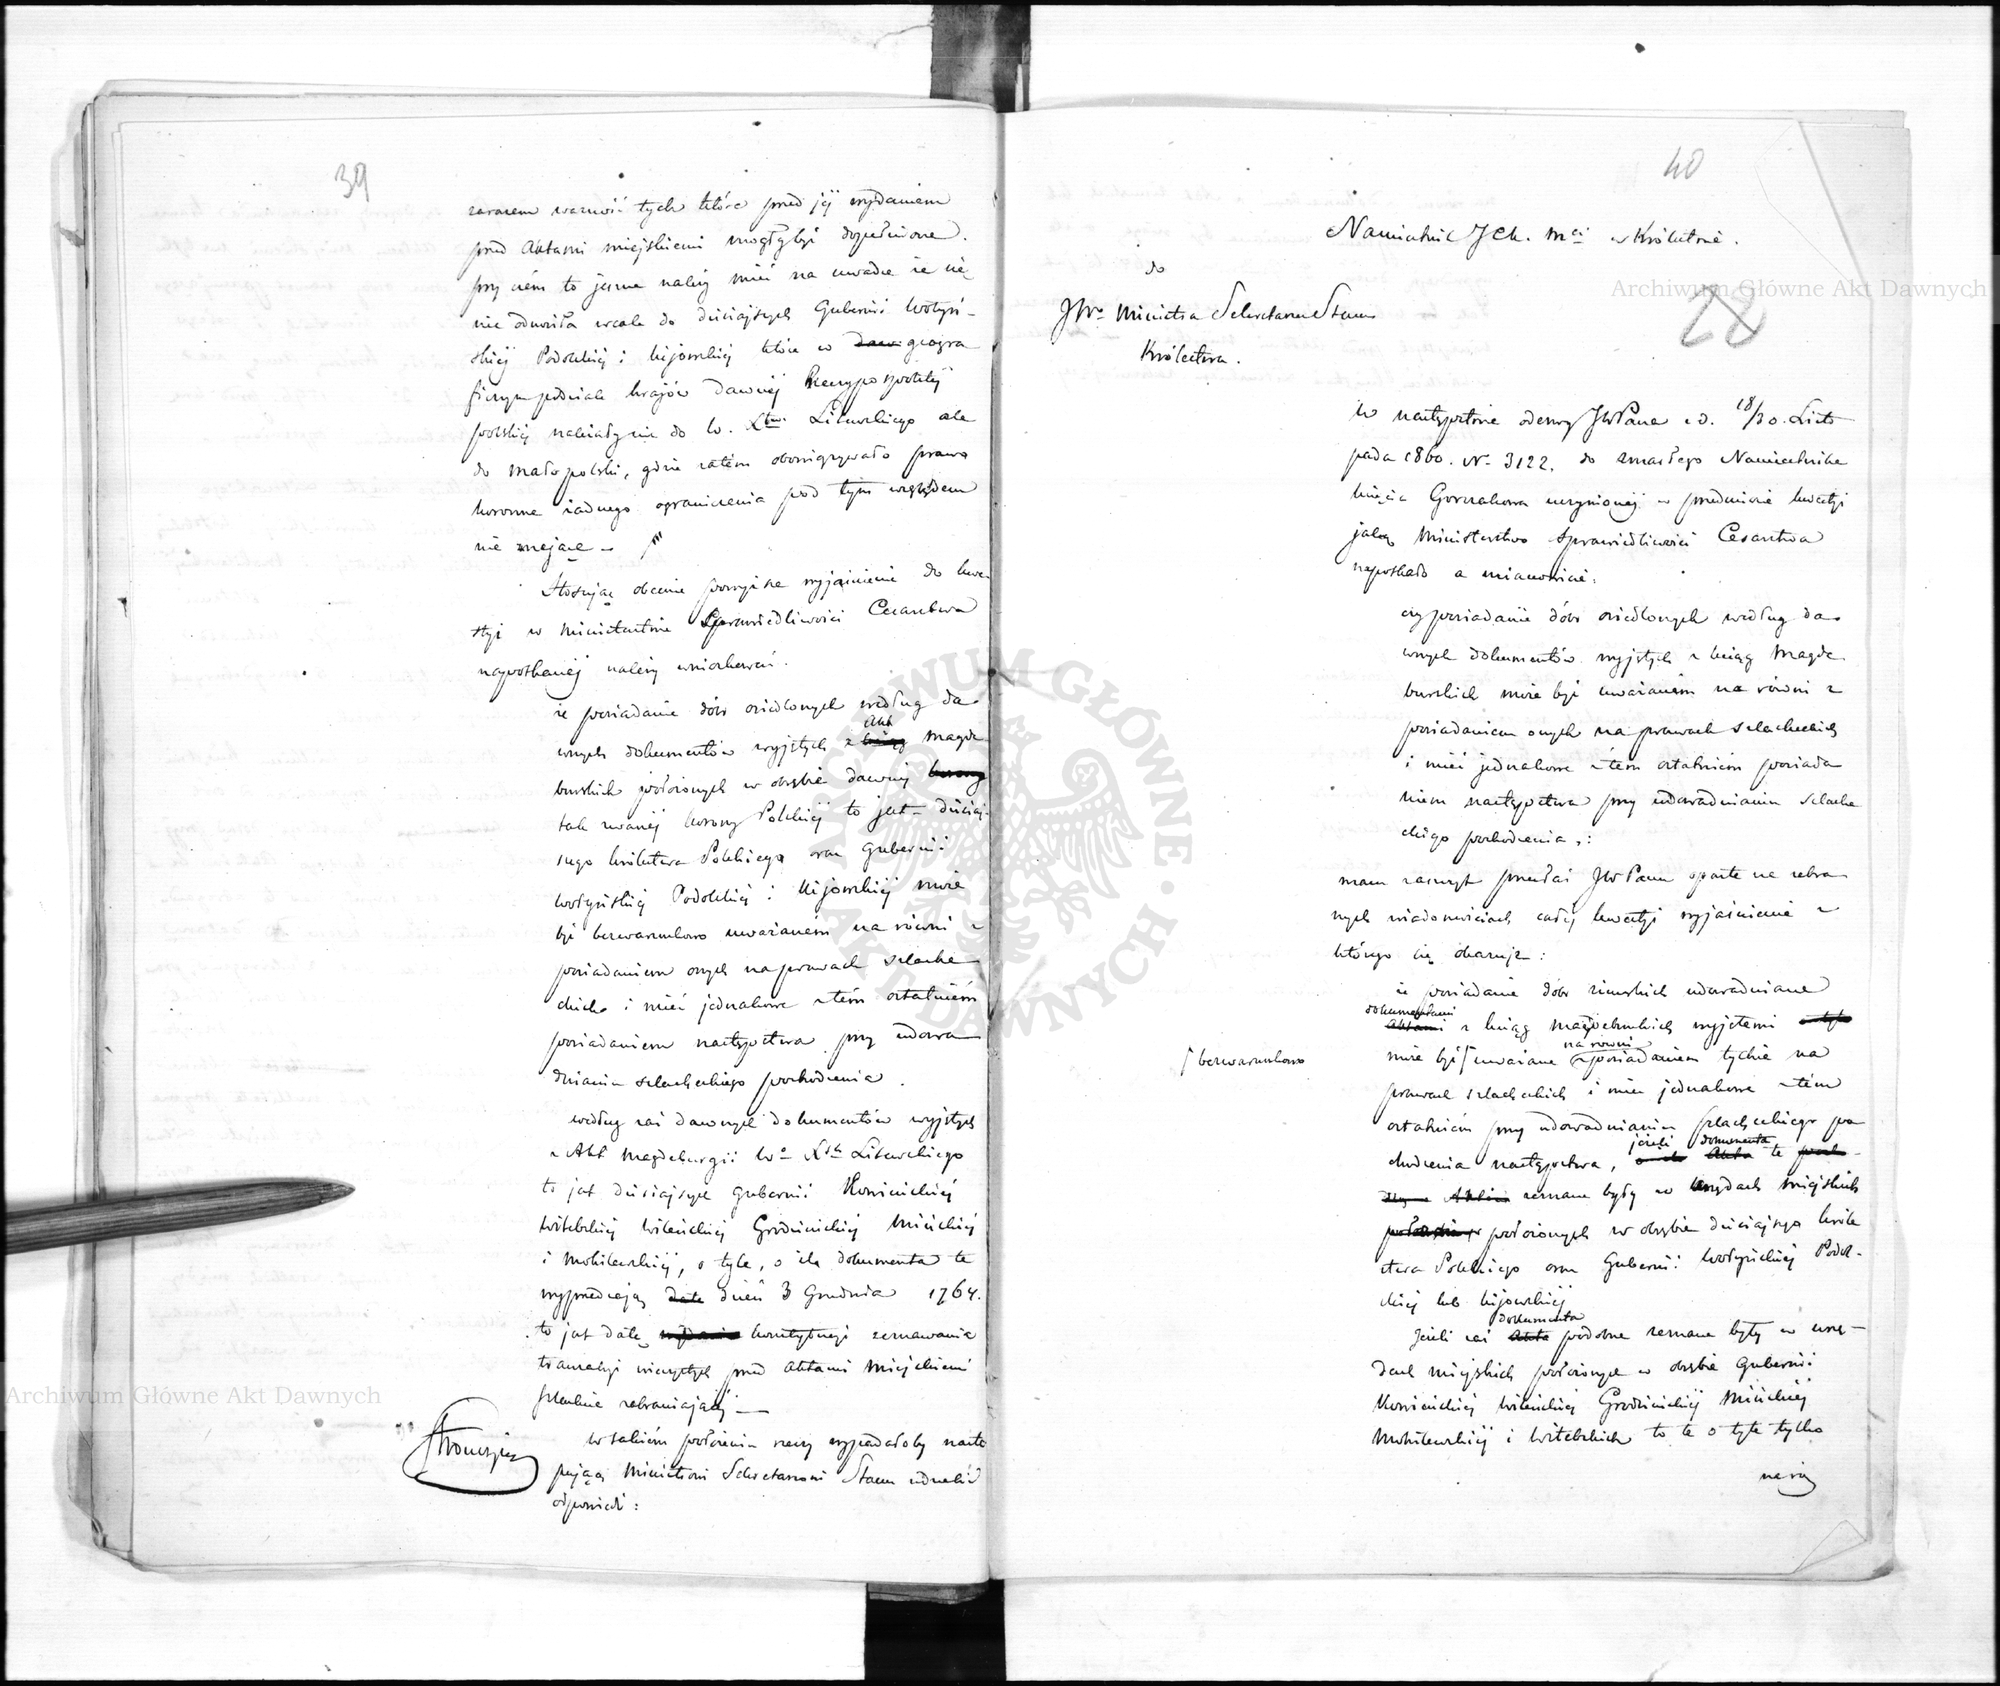 39
zarazem ważność tych które przed jej wydaniem
przed Aktami miejskiemi mogłyby dopełnione.
przy czém to jeszcze należy mieć na uwadze że się
nie odnosiła wcale do dzisiejszych Gubernii Wołyń-
skiéj Podolskiéj i Kijowskiéj które w geogra
ficznym podziale krajów dawnéj Rzeczypospolitéj
polskiéj należały nie do W. Xtwa Litewskiego ale
do Małopolski, gdzie zatém obowiązywało prawo
koronne żadnego ograniczenia pod tym względem
nie mające
Stosując obecnie powyższe wyjaśnienie do kwe-
styi w Ministerstwie Sprawiedliwości Cesarstwa
napotkanéj należy wnioskować.
że posiadanie dóbr osiedlonych według da-
wnych dokumentów wyjętych z Akt Magde-
burskich położonych w obrębie dawnéj
tak zwanéj Korony Polskiéj to jest dzisiaj-
szego Królestwa Polskiego oraz Gubernii
Wołyńskiéj Podolskiéj i Kijowskiéj może
być bezwarunkowo uważaném na równi z
posiadaniem onych na prawach szlache-
ckich i mieć jednakowe z tém ostatniém
posiadaniem następstwa przy udowa
dnianiu szlacheckiego pochodzenia.
według zaś dawnych dokumentów wyjętych
z Akt Magdeburgii Wo Xtwa Litewskiego
to jest dzisiajszych Gubernii Kowieńskiéj
Witebskiéj Wileńskiéj Grodzieńskiéj Mińskiéj
i Mohilewskiéj, o tyle, o ile dokumenta te
wyprzedzają dzień 3 Grudnia 1764.
to jest datę konstytucyi zeznawania
tranzakcyi wieczystych przed Aktami Miejskiemi
zabraniającéj
W takiém położeniu rzeczy wypadałoby nastę
pującą Ministrowi Sekretarzowi Stanu udzielić
odpowiedź:
Stronczyński
40
Namiestnik J C K. Mci w Królestwie.
do
JWo Ministra Sekretarza Stanu
Królestwa.
22
W następstwie odezwy JWPana z d. 18/30. Listo
pada 1860. No 3122. do zmarłego Namiestnika
Księcia Gorczakowa uczynionéj w przedmiocie kwestyi
jaką Ministerstwo Sprawiedliwości Cesarstwa
napotkało a mianowicie:
czy posiadanie dóbr osiedlonych według da-
wnych dokumentów wyjętych z ksiąg Magde-
burskich może być uważaném na równi z
posiadaniem onych na prawach szlacheckich
i mieć jednakowe z tém ostatniem posiada
niem następstwa przy udowadnianiu szlache
ckiego pochodzenia,:
mam zaszczyt przesłać JWPanu oparte na zebra
nych wiadomościach całéj kwestyi wyjaśnienie z
którego się okazuje:
że posiadanie dóbr ziemskich udowadniane
dokumentami z ksiąg magdeburskich wyjętemi
bezwarunkowo
może być uważane na równi z posiadaniem tychże na
prawach szlacheckich i mieć jednakowe z tém
ostatniém przy udowadnianiu szlacheckiego po
chodzenia następstwa, jeżeli dokumenta te
zeznane były w Urzędach Miejskich
położonych w obrębie dzisiajszego Króle
stwa Polskiego oraz Gubernii Wołyńskiéj Podol-
skiéj lub Kijowskiéj
Jeżeli zaś dokumenta podobne zeznane były w urzę-
dach miejskich położonych w obrębie Gubernii
Kowieńskiéj Wileńskiéj Grodzieńskiéj Mińskiéj
Mohilewskiéj i Witebskich to te o tyle tylko
Archiwum Główne Akt Dawnych
Archiwum Główne Akt Dawnych
ARCHIWUM GŁÓWNE AKT DAWNYCH